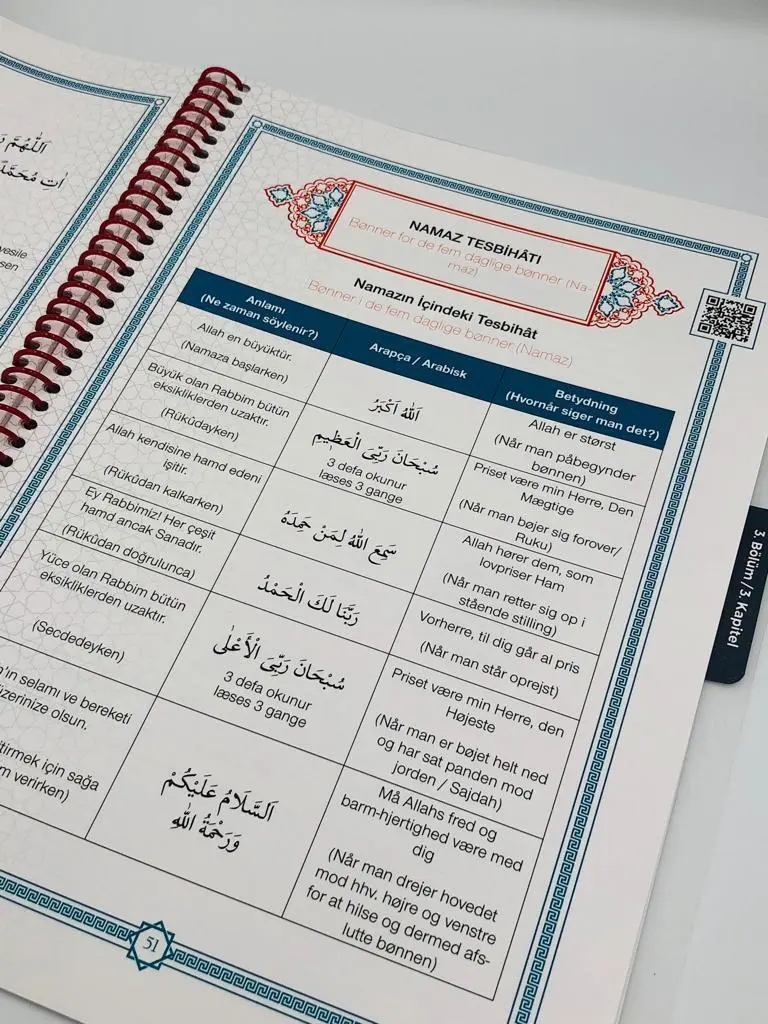 اَللّٰهُمَّ
مُحَمَّدٍ
vesile
NAMAZ TESBİHÂTI
Bønner for de fem daglige bønner (Na-
maz)
Namazın İçindeki Tesbihât
Bønner i de fem daglige bønner (Namaz)
Anlamı
(Ne zaman söylenir?)
Arapça / Arabisk
Betydning
(Hvornår siger man det?)
Allah en büyüktür.
(Namaza başlarken)
اَللّٰهُ اَكْبَرُ
Allah er størst
(Når man påbegynder
bønnen)
Büyük olan Rabbim bütün
eksikliklerden uzaktır.
(Rükûdayken)
سُبْحَانَ رَبِّىَ الْعَظِيمِ
3 defa okunur
læses 3 gange
Priset være min Herre, Den
Mægtige
(Når man bøjer sig forover/
Ruku)
Allah kendisine hamd edeni
işitir.
(Rükûdan kalkarken)
سَمِعَ اللّٰهُ لِمَنْ حَمِدَهُ
Allah hører dem, som
lovpriser Ham
(Når man retter sig op i
stående stilling)
Ey Rabbimiz! Her çeşit
hamd ancak Sanadır.
(Rükûdan doğrulunca)
رَبَّنَا لَكَ الْحَمْدُ
Vorherre, til dig går al pris
(Når man står oprejst)
Yüce olan Rabbim bütün
eksikliklerden uzaktır.
(Secdedeyken)
سُبْحَانَ رَبِّىَ الْأَعْلٰى
3 defa okunur
læses 3 gange
Priset være min Herre, den
Højeste
(Når man er bøjet helt ned
og har sat panden mod
jorden / Sajdah)
'ın selamı ve bereketi
üzerinize olsun.
için sağa
verirken)
اَلسَّلَامُ عَلَيْكُمْ
وَرَحْمَةُ اللّٰهِ
Må Allahs fred og
barm-hjertighed være med
dig
(Når man drejer hovedet
mod hhv. højre og venstre
for at hilse og dermed afs-
lutte bønnen)
51
3. Bölüm / 3. Kapitel